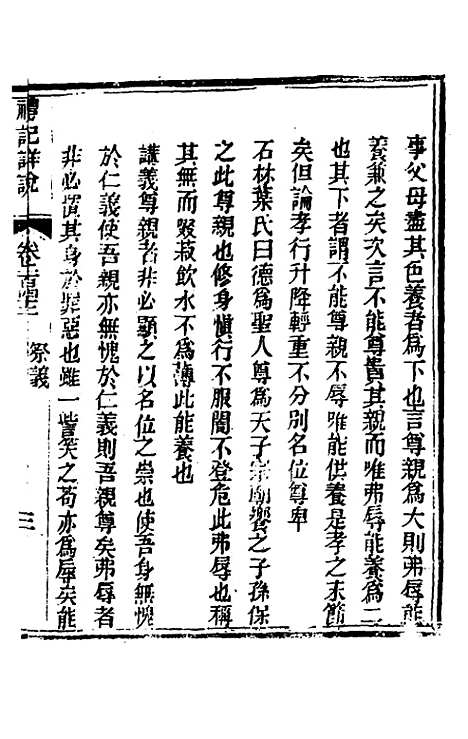 事父母盡其色養者為下也言尊親為大則弗辱能
養兼之矣次言不能尊貴其親而唯弗辱能養為二
也其下者謂不能尊親不辱唯能供養是孝之末節
矣但論孝行升降輕重不分別名位尊卑
石林葉氏曰德為聖人尊為天子宗廟饗之子孫保
之此尊親也修身愼行不服闇不登危此弗辱也稱
其無而啜菽飲水不為薄此能養也
講義尊親者非必顯之以名位之崇也使吾身無愧
於仁義使吾親亦無愧於仁義則吾親尊矣弗辱者
非必寘其身於罪惡也雖一訾笑之苟亦為辱矣能
禮記詳說
卷
祭義
三